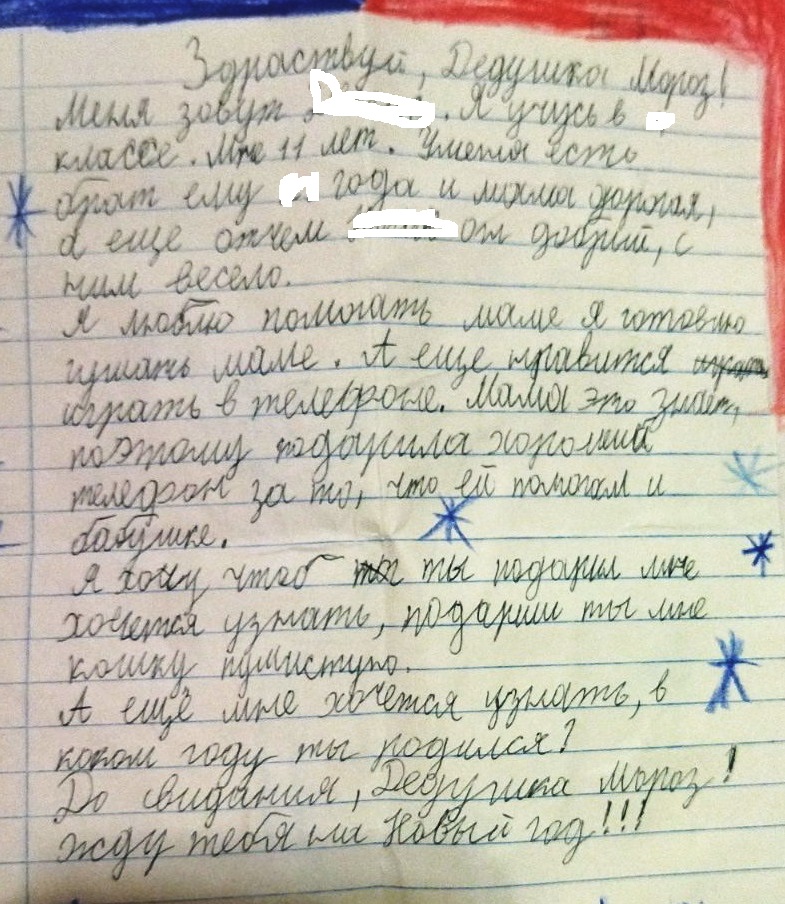 Здраствуй, Дедушка Мороз!
Меня зовут . Я учусь в
классе. Мне 11 лет. У меня есть
брат ему года и мама дорогая,
а еще отчем он добрий, с
ним весело.
Я люблю помогать маме я готовлю
кушать маме. А еще нравится
играть в телефоне. Мама это знает,
поэтому подарила хороший
телефон за то, что ей помогаю и
бабушке.
Я хочу чтоб ты подарил мне
хочется узнать, подариш ты мне
кошку пушистую.
А ещё мне хочется узнать, в
каком году ты родился?
До свидания, Дедушка Мороз!
Жду тебя на Новый год!!!